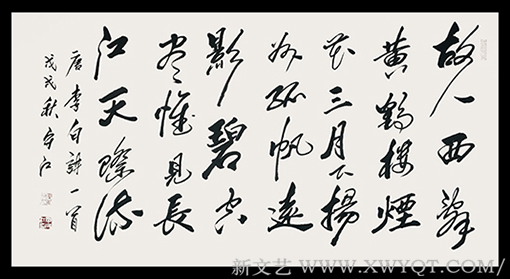 故人西辭
黄鶴樓煙
花三月下揚
州孤帆遠
影碧空
盡惟見長
江天際流
唐李白詩一首
戊戌秋
新文艺 WWW.XWYQT.COM/